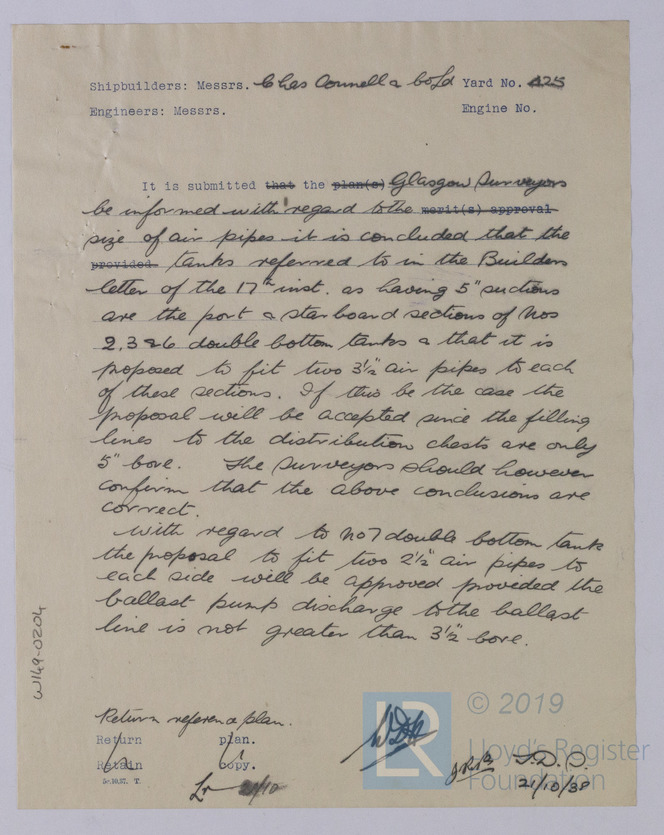 Shipbuilders: Messrs. Chas Connell & Co Ld Yard No. 425
Engineers: Messrs. Engine No.
It is submitted that the plan(s) Glasgow Surveyors
be informed with regard to the merit(s) approval
size of air pipes it is concluded that the
provided tanks referred to in the Builders
letter of the 17th inst. as having 5" suctions
are the port & starboard sections of Nos
2, 3 & 6 double bottom tanks & that it is
proposed to fit two 3½" air pipes to each
of these sections. If this be the case the
proposal will be accepted since the filling
lines to the distribution chests are only
5" bore. The Surveyors should however
confirm that the above conclusions are
correct.
With regard to No 7 double bottom tank
the proposal to fit two 2½" air pipes to
each side will be approved provided the
ballast pump discharge to the ballast
line is not greater than 3½" bore.
W149-0204
Return reference plan.
Return plan.
Retain copy.
Lr 21/10
J.D.C.
21/10/38
© 2019
LR
Lloyd's Register
Foundation